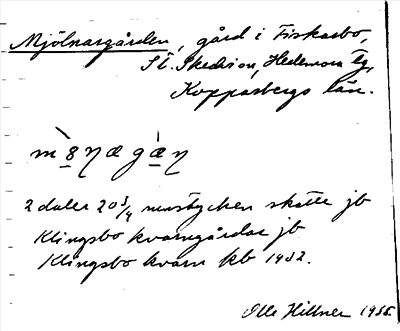 Mjölnargården, gård i Fiskarbo,
St. Skedvi sn, Hedemora tg,
Kopparbergs län.
m8ηægæη
2 daler 20 3/4 skatte jb
Klingsbo kvarngårdar jb
Klingsbo kvarn kb 1932.
Olle Hillner 1935.